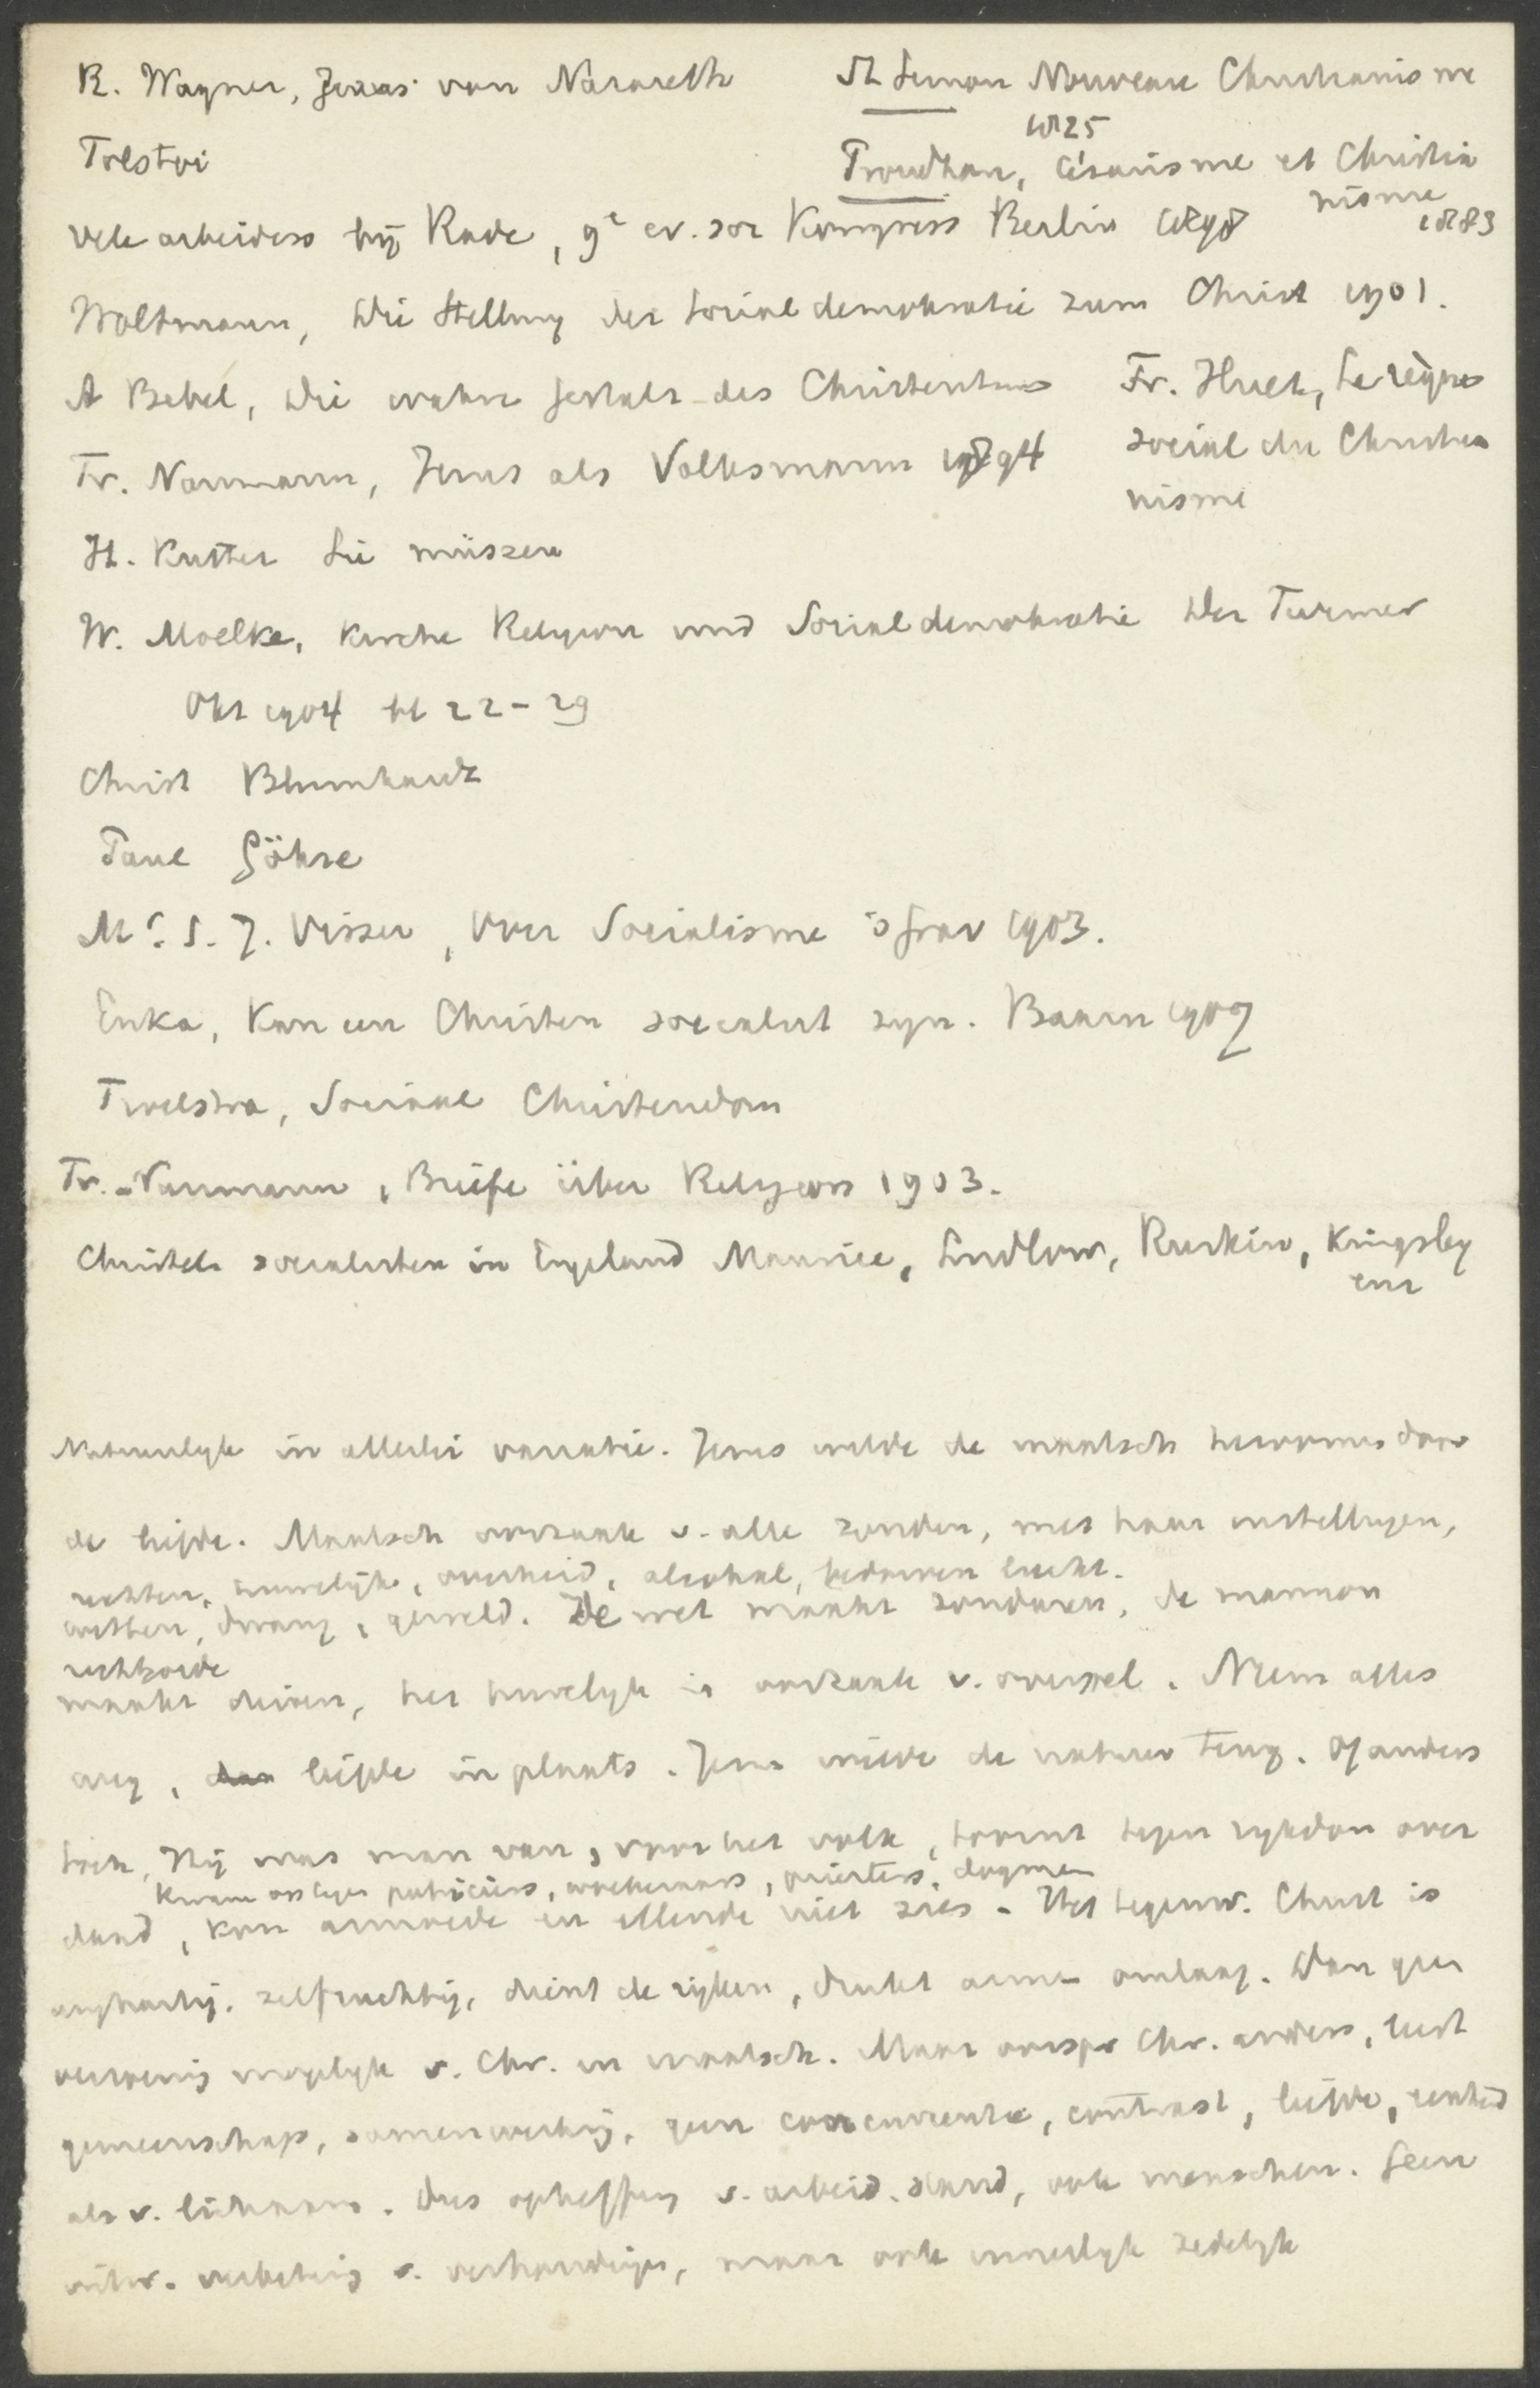 R. Wagner, Jesus von Nazareth
St Simon Nouveau Christianisme
1825
Tolstoi
Proudhon, Césarisme et Christia
nisme
1883
Vele arbeiders bij Rade, 9e ev. soc Kongress Berlin 1898
Woltmann, Die Stellung der Socialdemokratie zum Christ 1901.
A Bebel, Die wahre Gestalt des Christentums
Fr. Huet, Le règne
social du Christia
nisme
Fr. Naumann, Jesus als Volksmann 1894
H. Kutter Sie müssen
W. Moelke, Kirche Religion und Socialdemokratie Der Türmer
Okt 1904 bl 22-29
Christ Blumhardt
Paul Göhre
Mr. S. J. Visser, Over Socialisme 's Grav 1903.
Enka, Kan een Christen socialist zyn. Baarn 1907
Troelstra, Sociaal Christendom
Fr. Naumann, Briefe über Religion 1903.
Christel. socialisten in Engeland Maurice, Ludlow, Ruskin, Kingsley
enz
Natuurlyk in allerlei variatie. Jesus wilde de maatsch hervormen door
de liefde. Maatsch oorzaak v. alle zonden, met haar instellingen,
rechten, huwelijk, overheid, alcohol, bedorven lucht.
wetten, dwang, geweld. De wet maakt zondaren, de mammon
rechtsorde
maakt dieven, het huwelyk is oorzaak v. overspel. Neem alles
weg, liefde in plaats. Jezus wilde de natuur terug. Of anders
toch, Hij was man van, voor het volk, toornt tegen rykdom over
kwam op tegen patriciërs, woekeraars, priesters, dogmen
daad, kon armoede en ellende niet zien. Het tegenw. Christ is
enghartig, zelfzuchtig, dient de ryken, drukt armen omlaag. Dan geen
vereenig mogelyk v. Chr. en maatsch. Maar oorspr Chr. anders, eist
gemeenschap, samenwerking, geen concurrentie, contrast, liefde, eenheid
als v. lichaam. Dus opheffing v. arbeid. stand, ook menschen. Geen
uitw. verbetering v. verhoudingen, maar ook innerlyk zedelyk